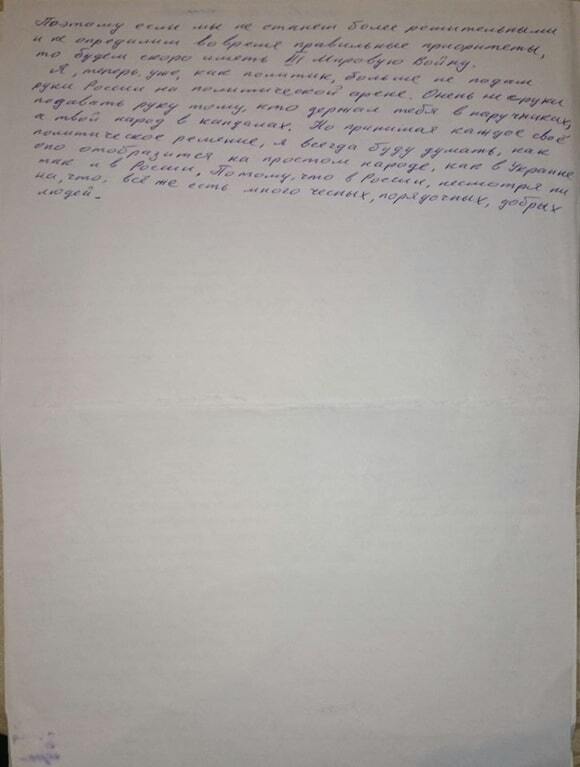 Поэтому если мы не станем более решительными
и не опредилим во время правильные приоритеты,
то будем скоро иметь III Мировую Войну.
Я, теперь уже, как политик, больше не подам
руки России на политической арене. Очень не с руки
подавать руку тому, кто держал тебя в наручниках,
а твой народ в кандалах. Но принимая каждое своё
политическое решение, я всегда буду думать, как
оно отобразится на простом народе, как в Украине
так и в России. Потому, что в России, несмотря ни
на, что, всё же есть много чесных, порядочных, добрых
людей.